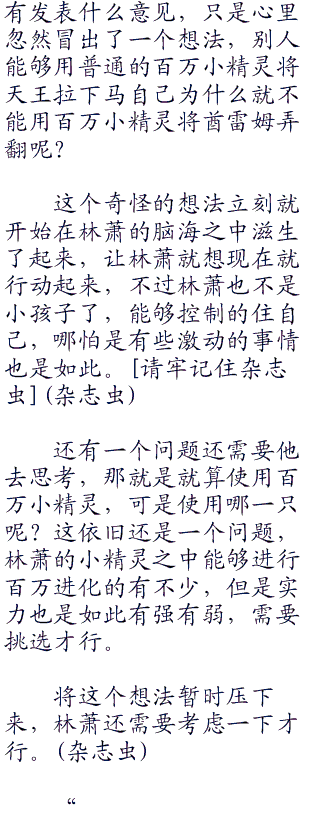 有发表什么意见，只是心里
忽然冒出了一个想法，别人
能够用普通的百万小精灵将
天王拉下马自己为什么就不
能用百万小精灵将酋雷姆弄
翻呢？
这个奇怪的想法立刻就
开始在林萧的脑海之中滋生
了起来，让林萧就想现在就
行动起来，不过林萧也不是
小孩子了，能够控制的住自
己，哪怕是有些激动的事情
也是如此。[请牢记住杂志
虫](杂志虫)
还有一个问题还需要他
去思考，那就是就算使用百
万小精灵，可是使用哪一只
呢？这依旧还是一个问题，
林萧的小精灵之中能够进行
百万进化的有不少，但是实
力也是如此有强有弱，需要
挑选才行。
将这个想法暂时压下
来，林萧还需要考虑一下才
行。(杂志虫)
“